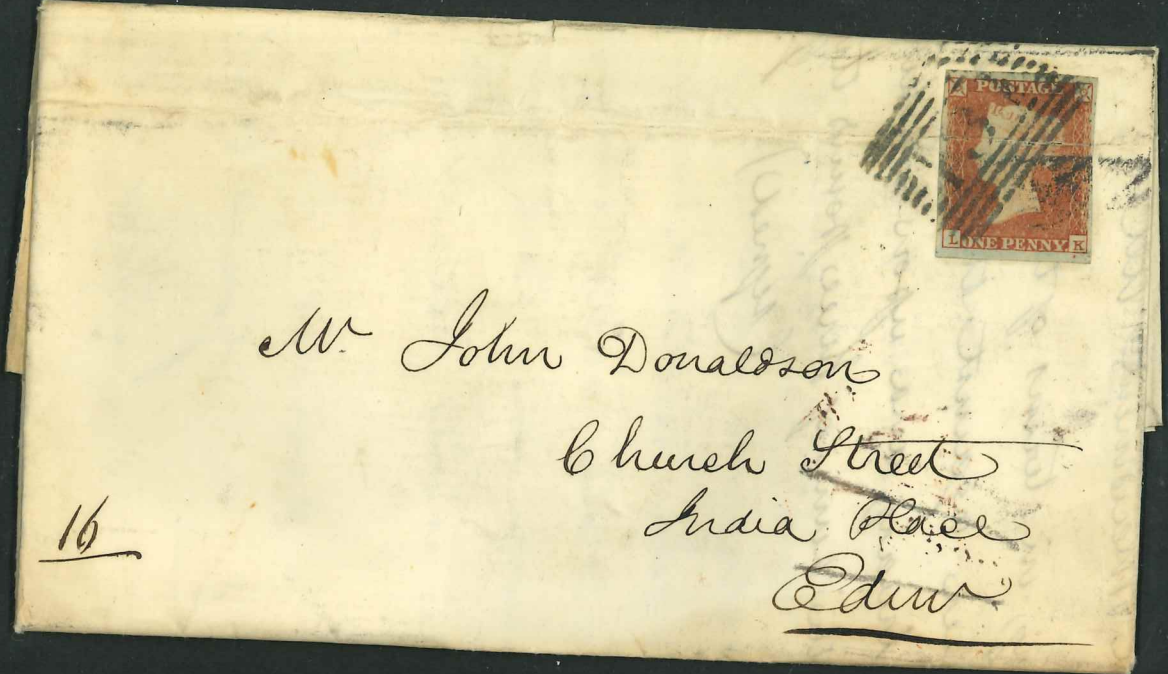 POSTAGE
L ONE PENNY K
Mr John Donaldson
Church Street
India Place
Edinr
16